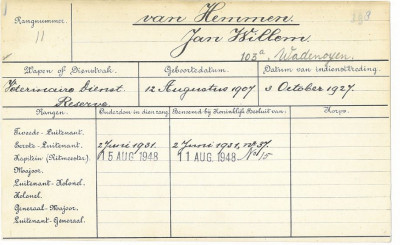 Rangnummer.
11
van Hemmen.
Jan Willem.
103a, Wadenoyen.
Wapen of Dienstvak.
Geboortedatum.
Datum van indiensttreding.
Veterinaire Dienst.
Reserve
12 Augustus 1907.
3 October 1927.
Rangen.
Ouderdom in dien rang.
Benoemd bij Koninklijk Besluit van:
Korps.
Tweede-Luitenant.
Eerste-Luitenant.
2 Juni 1931.
2 Juni 1931, no 37.
Kapitein (Ritmeester)
15 AUG. 1948
11 AUG. 1948
No 15
Majoor.
Luitenant-Kolonel.
Kolonel.
Generaal-Majoor.
Luitenant-Generaal.